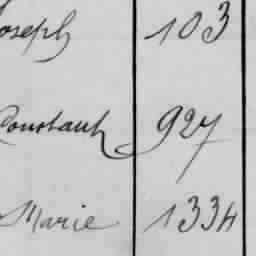 Joseph 103
Constant 927
Marie 1334